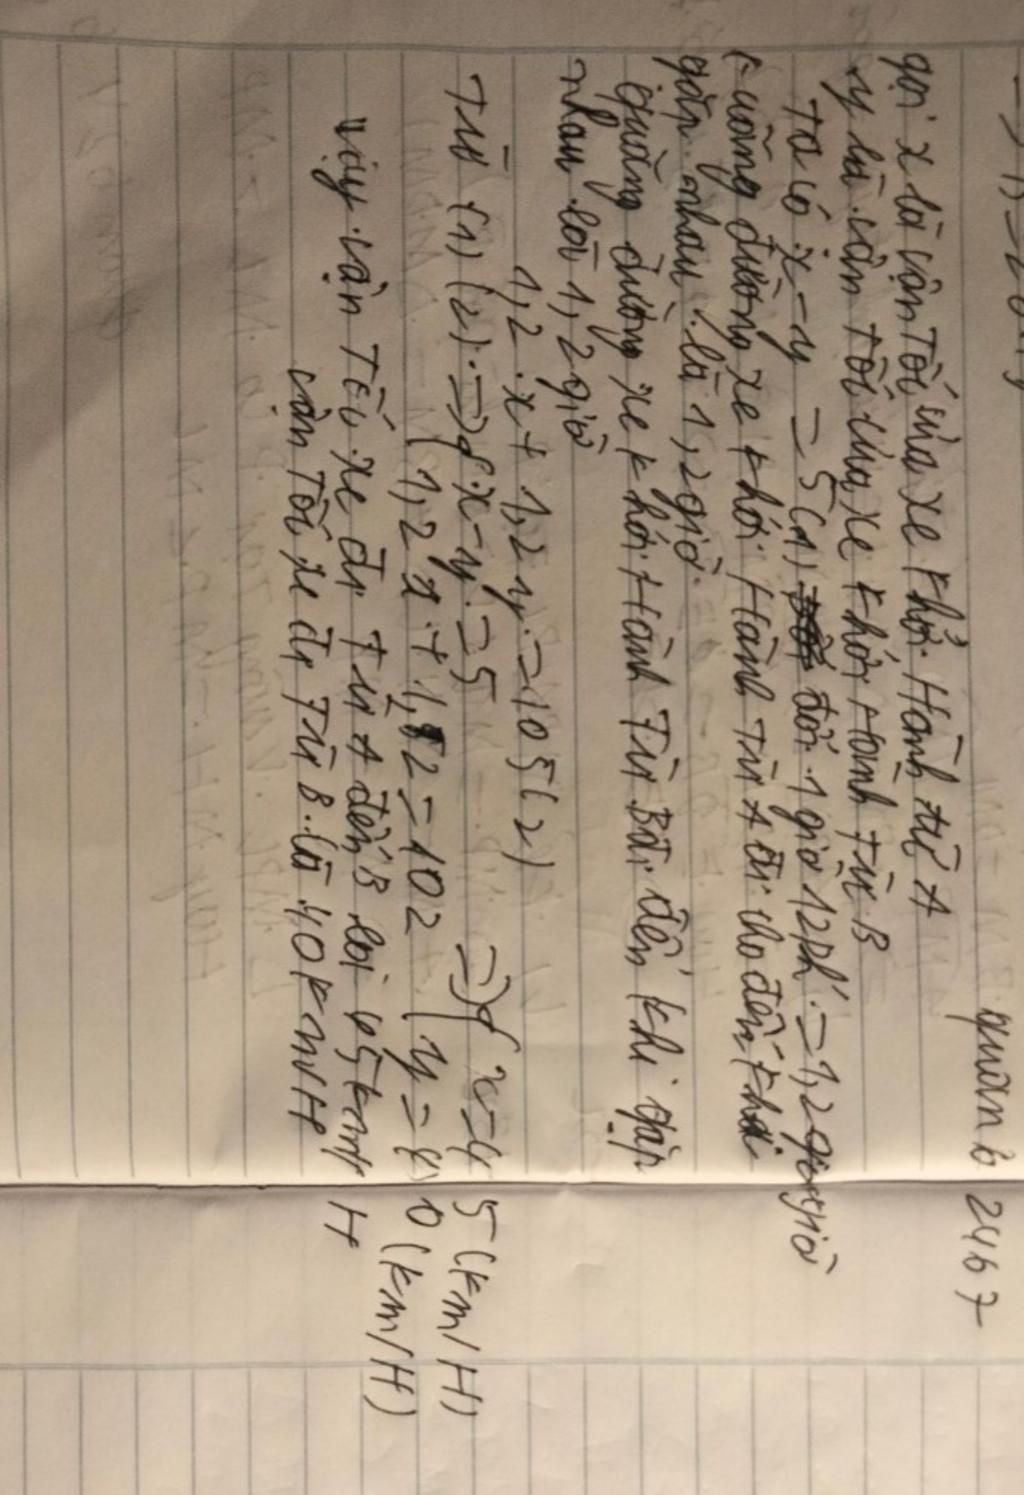 quan b 2467
gọi x là vận Tốc của xe khởi Hành từ A
y là vận Tốc của xe khởi Hành Từ B
Ta có x - y = 5 (1) đổi 1 giờ 12 ph' = 1,2 giờ
quãng đường xe khởi Hành Từ A đi cho đến khi
gặp nhau là 1,2 giờ.
quãng đường xe khởi Hành Từ B đi đến khi gặp
nhau là 1,2 giờ
1,2 x + 1,2 y = 105 (2)
Từ (1) (2) => { x - y = 5 => { x = 45 (km/H)
{ 1,2 x + 1,2 = 102 { y = 40 (km/H)
vậy vận Tốc xe đi từ A đến B là 45 km/H
vận Tốc xe đi Từ B là 40 km/H